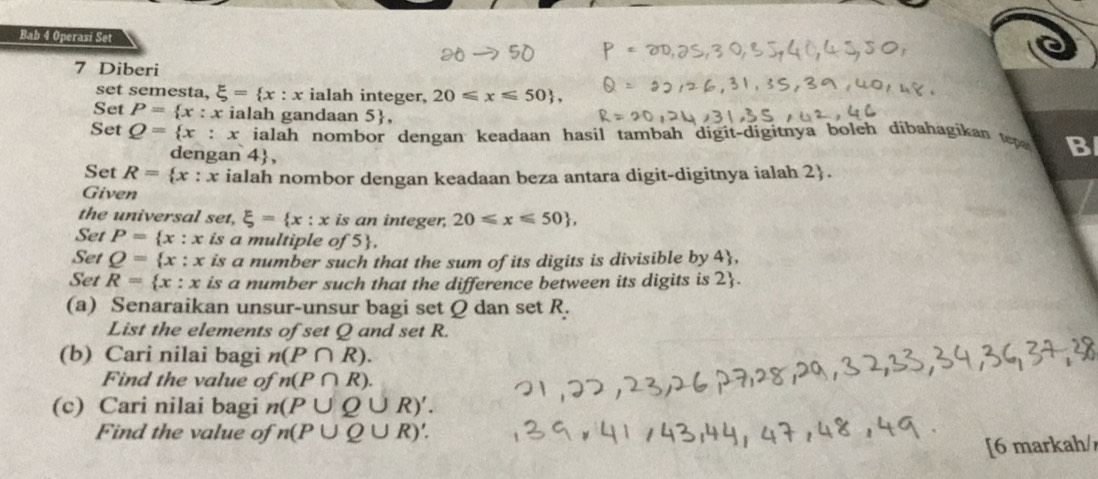 Bab 4 Operasi Set
20 → 50
P = 20,25,30,35,40,45,50,
7 Diberi
Q = 22,26,31,35,39,40,48.
set semesta, ξ = {x : x ialah integer, 20 ⩽ x ⩽ 50},
Set P = {x : x ialah gandaan 5},
R = 20,24,31,35,42,46
Set Q = {x : x ialah nombor dengan keadaan hasil tambah digit-digitnya boleh dibahagikan
dengan 4},
Set R = {x : x ialah nombor dengan keadaan beza antara digit-digitnya ialah 2}.
Given
the universal set, ξ = {x : x is an integer, 20 ⩽ x ⩽ 50},
Set P = {x : x is a multiple of 5},
Set Q = {x : x is a number such that the sum of its digits is divisible by 4},
Set R = {x : x is a number such that the difference between its digits is 2}.
(a) Senaraikan unsur-unsur bagi set Q dan set R.
List the elements of set Q and set R.
(b) Cari nilai bagi n(P ∩ R).
Find the value of n(P ∩ R).
21,22,23,26,27,28,29,32,33,34,36,37,38
(c) Cari nilai bagi n(P ∪ Q ∪ R)′.
Find the value of n(P ∪ Q ∪ R)′.
,39,41,43,44,47,48,49.
[6 markah/